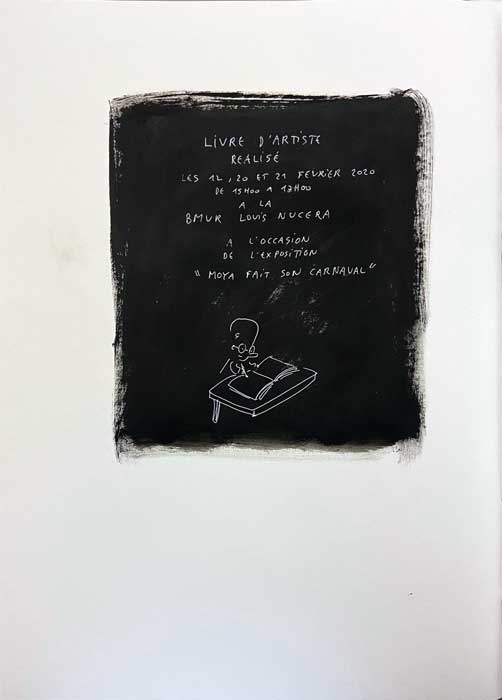 LIVRE D'ARTISTE
REALISÉ
LES 12, 20 ET 21 FEVRIER 2020
DE 15H00 A 17H00
A LA
BMVR LOUIS NUCERA
A L'OCCASION
DE L'EXPOSITION
"MOYA FAIT SON CARNAVAL"